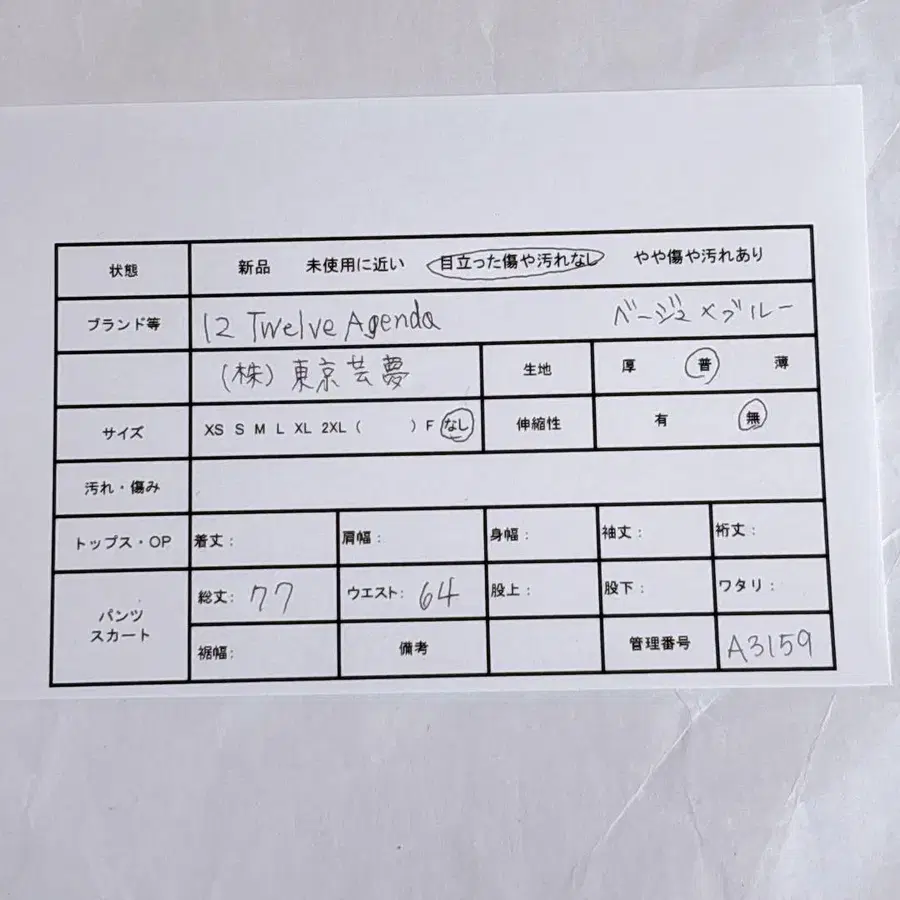 状態 新品 未使用に近い 目立った傷や汚れなし やや傷や汚れあり
ブランド等 12 Twelve Agenda ベージュ×ブルー
(株)東京芸夢 生地 厚 普 薄
サイズ XS S M L XL 2XL ( ) F なし 伸縮性 有 無
汚れ・傷み
トップス・OP 着丈: 肩幅: 身幅: 袖丈: 裄丈:
パンツ スカート 総丈: 77 ウエスト: 64 股上: 股下: ワタリ:
裾幅: 備考 管理番号 A3159